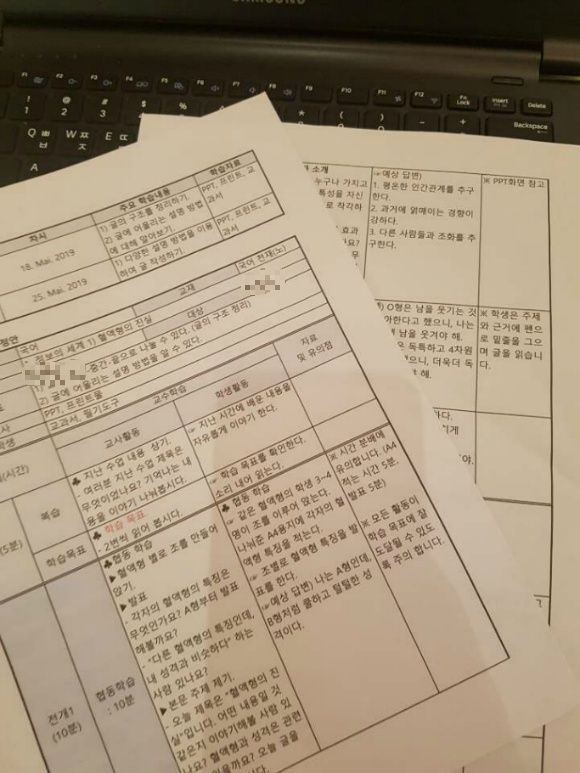 SAMSUNG
F1 F2 F3 F4 F5 F6 F7 F8 F9 F10 F11 F12 Fn Lock Insert Delete
Backspace
차시
주요 학습내용
학습자료
18. Mai. 2019
1) 글의 구조를 정리하기.
2) 글에 어울리는 설명 방법에 대해 알아보기.
PPT, 프린트, 교과서
25. Mai. 2019
1) 다양한 설명 방법을 이용하며 글 작성하기.
PPT, 프린트, 교과서
교재
국어 천재(노)
국어
대상
정보의 세계 1) 혈액형의 진실
중간·끝으로 나눌 수 있다. (글의 구조 정리)
2) 글에 어울리는 설명 방법을 알 수 있다.
PPT, 프린트물
교과서, 필기도구
(시간)
교수학습
자료 및 유의점
교사활동
학생활동
(5분)
복습
♣ 지난 수업 내용 상기.
- 여러분 지난 수업 제목은 무엇이었나요? 기억나는 내용을 이야기 나눠봅시다.
☞ 지난 시간에 배운 내용을 자유롭게 이야기 한다.
학습목표
♣ 학습 목표
- 2번씩 읽어 봅시다.
☞ 학습 목표를 확인한다. 소리 내어 읽는다.
전개1
(10분)
협동학습
: 10분
♣ 협동 학습
▶혈액형 별로 조를 만들어 앉기.
▶발표
- 각자의 혈액형의 특징은 무엇인가요? A형부터 발표해볼까요?
- "다른 혈액형의 특징인데, 내 성격과 비슷하다" 하는 사람 있나요?
▶본문 주제 제기.
- 오늘 제목은 "혈액형의 진실"입니다. 어떤 내용일 것 같은지 이야기해볼 사람 있나요? 혈액형과 성격은 관련
을까요? 오늘 글을
♣ 협동 학습
☞ 같은 혈액형의 학생 3~4명이 조를 이루어 앉는다.
☞ 나눠준 A4용지에 각자의 혈액형 특징을 적는다.
☞ 조별로 혈액형 특징을 발표를 한다.
☞ 예상 답변) 나는 A형인데, B형처럼 쿨하고 털털한 성격이다.
※ 시간 분배에 유의합니다. (A4 적는 시간 5분, 발표 5분)
※ 모든 활동이 학습 목표에 잘 도달될 수 있도록 주의 합니다.
소개
누구나 가지고
특성을 자신
로 착각하
효과
☞ 예상 답변)
1. 평온한 인간관계를 추구한다.
2. 과거에 얽매이는 경향이 강하다.
3. 다른 사람들과 조화를 추구한다.
※ PPT화면 참고
O형은 남을 웃기는 것
아한다고 했으니, 나는
남을 웃겨야 해.
은 독특하고 4차원
했으니, 더욱더 독
야 해.
※ 학생은 주제와 근거에 펜으로 밑줄을 그으며 글을 읽습니다.